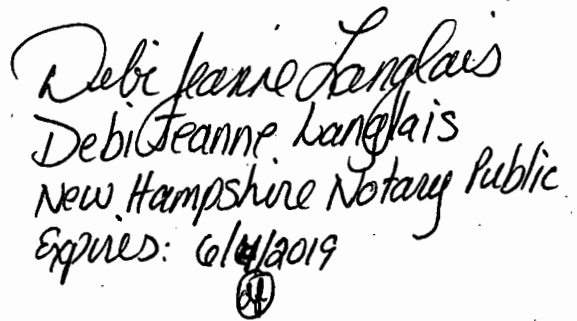 Debi Jeanne Langlais
Debi Jeanne Langlais
New Hampshire Notary Public
Expires: 6/4/2019